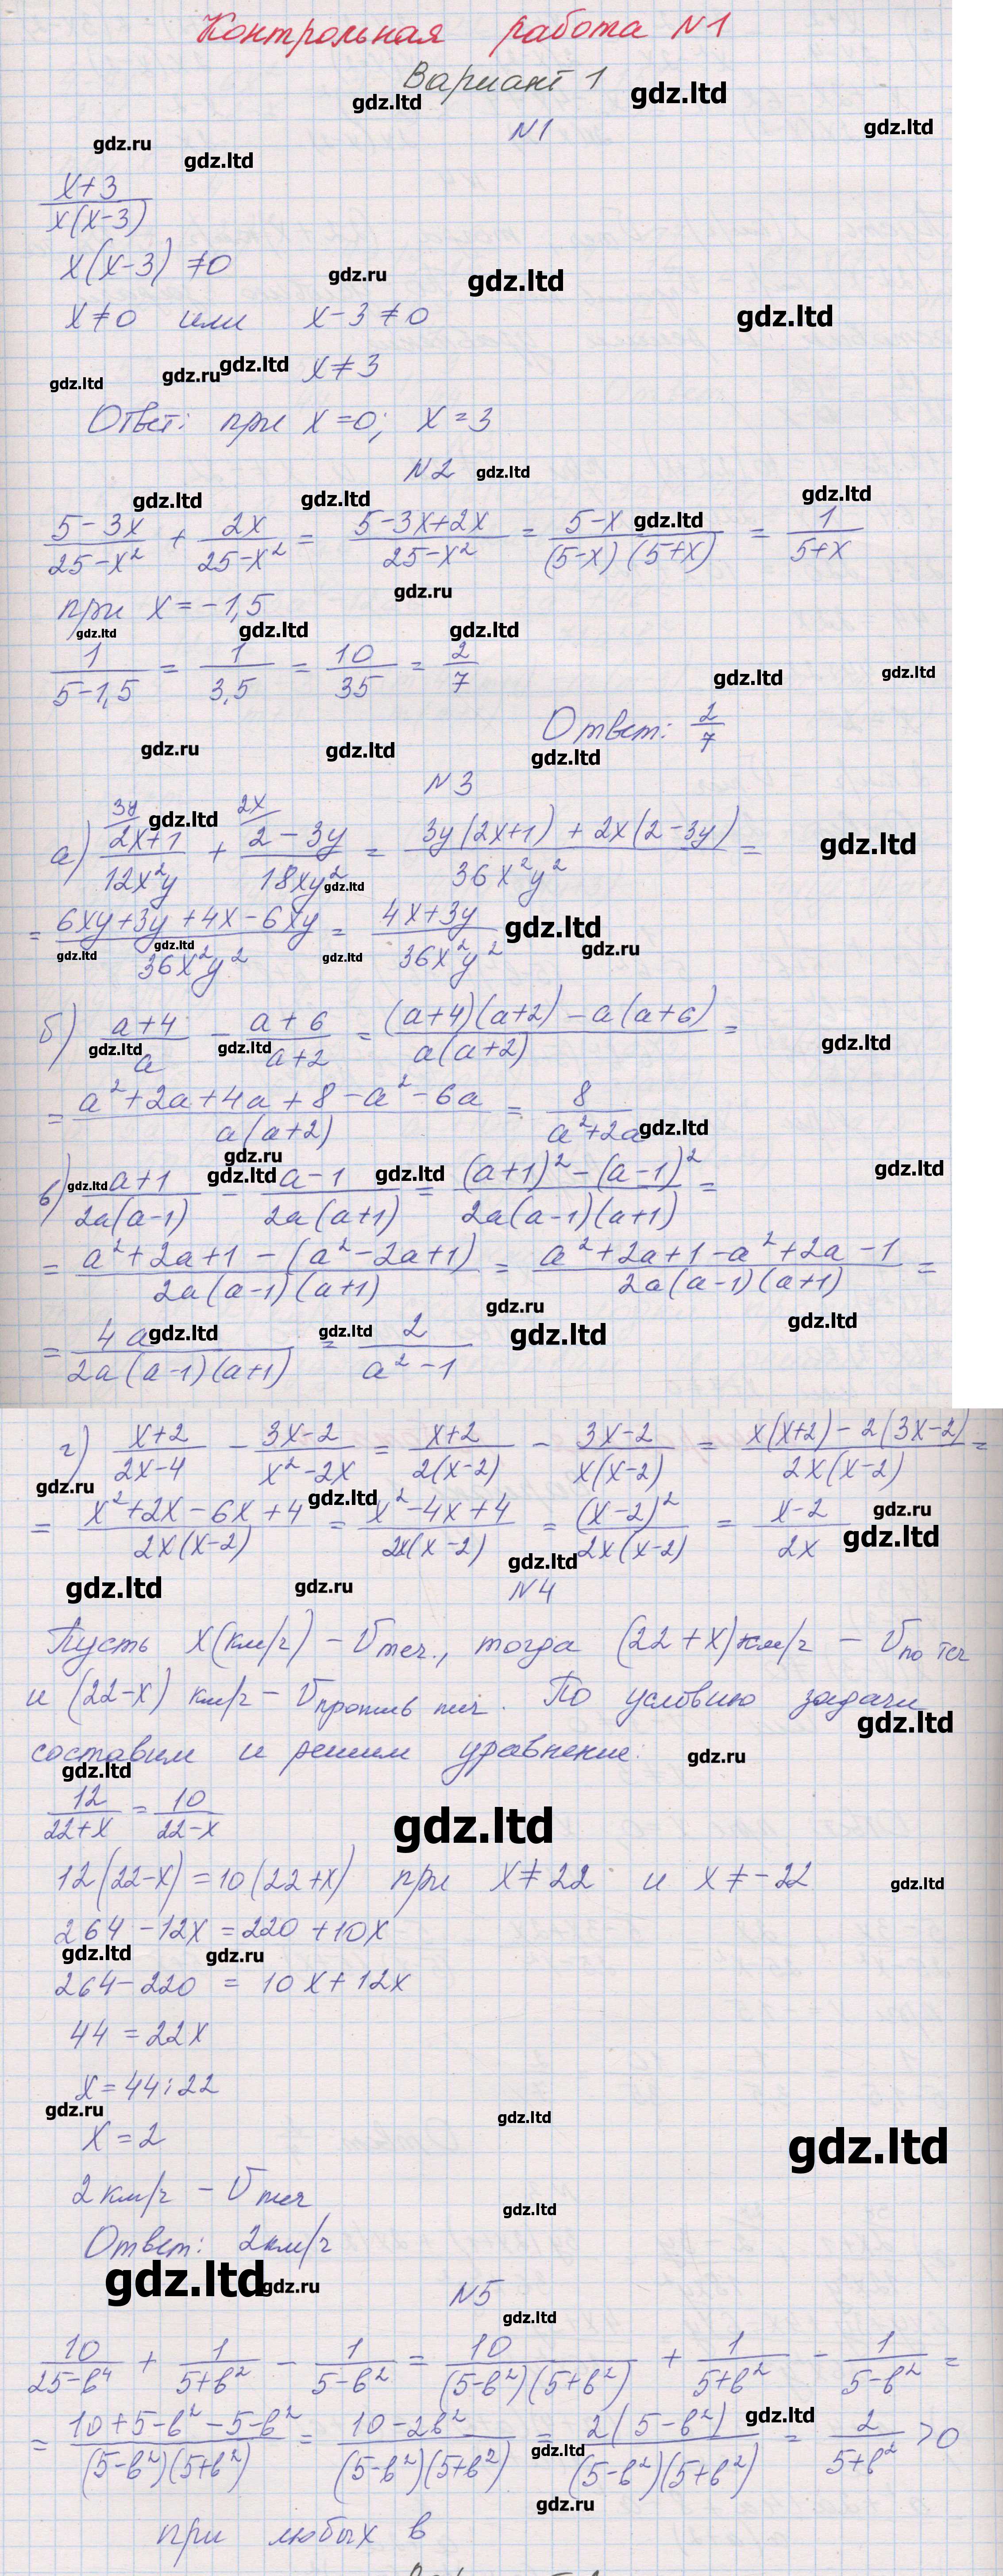 Контрольная работа N1
Вариант 1
gdz.ltd gdz.ltd
N1
gdz.ltd
gdz.ru
gdz.ltd
x+3
x(x-3)
x(x-3) ≠0
gdz.ru gdz.ltd
x≠0 или x-3≠0
gdz.ltd
gdz.ltd gdz.ru gdz.ltd x≠3
Ответ: при x=0; x=3
N2 gdz.ltd
gdz.ltd gdz.ltd gdz.ltd
5-3x/25-x² + 2x/25-x² = 5-3x+2x/25-x² = 5-x/(5-x)(5+x) = 1/5+x
gdz.ltd
gdz.ru
при x=-1,5
gdz.ltd gdz.ltd gdz.ltd
1/5-1,5 = 1/3,5 = 10/35 = 2/7
gdz.ltd gdz.ltd
Ответ: 2/7
gdz.ru gdz.ltd gdz.ltd
N3
3y gdz.ltd 2x
а) 2x+1/12x²y + 2-3y/18xy² = 3y(2x+1)+2x(2-3y)/36x²y² =
gdz.ltd
gdz.ltd
= 6xy+3y+4x-6xy/36x²y² = 4x+3y/36x²y²
gdz.ltd gdz.ltd gdz.ltd gdz.ltd gdz.ru
б) a+4/a - a+6/a+2 = (a+4)(a+2)-a(a+6)/a(a+2) =
gdz.ltd gdz.ltd gdz.ltd
= a²+2a+4a+8-a²-6a/a(a+2) = 8/a²+2a
gdz.ltd
gdz.ru
в) a+1/2a(a-1) - a-1/2a(a+1) = (a+1)²-(a-1)²/2a(a-1)(a+1) =
gdz.ltd gdz.ltd gdz.ltd gdz.ltd
= a²+2a+1-(a²-2a+1)/2a(a-1)(a+1) = a²+2a+1-a²+2a-1/2a(a-1)(a+1) =
gdz.ru gdz.ltd
= 4a/2a(a-1)(a+1) = 2/a²-1
gdz.ltd gdz.ltd gdz.ltd
г) x+2/2x-4 - 3x-2/x²-2x = x+2/2(x-2) - 3x-2/x(x-2) = x(x+2)-2(3x-2)/2x(x-2) =
gdz.ru
= x²+2x-6x+4/2x(x-2) = x²-4x+4/2x(x-2) = (x-2)²/2x(x-2) = x-2/2x
gdz.ltd gdz.ru gdz.ltd
gdz.ltd
gdz.ltd gdz.ru N4
Пусть x(км/ч) - Vтеч., тогда (22+x)км/ч - Vпо теч
и (22-x) км/ч - Vпротив теч. По условию задачи
gdz.ltd
составим и решим уравнение:
gdz.ltd gdz.ru
12/22+x = 10/22-x
gdz.ltd
12(22-x)=10(22+x) при x≠22 и x≠-22
gdz.ltd
264-12x=220+10x
gdz.ltd gdz.ru
264-220 = 10x+12x
44=22x
x=44:22
gdz.ru gdz.ltd
x=2
gdz.ltd
2км/ч - Vтеч
gdz.ltd
Ответ: 2км/ч
gdz.ltd gdz.ru
N5
gdz.ltd
10/25-в⁴ + 1/5+в² - 1/5-в² = 10/(5-в²)(5+в²) + 1/5+в² - 1/5-в² =
gdz.ltd
= 10+5-в²-5-в²/(5-в²)(5+в²) = 10-2в²/(5-в²)(5+в²) = 2(5-в²)/(5-в²)(5+в²) = 2/5+в² >0
gdz.ltd
gdz.ru
при любых в